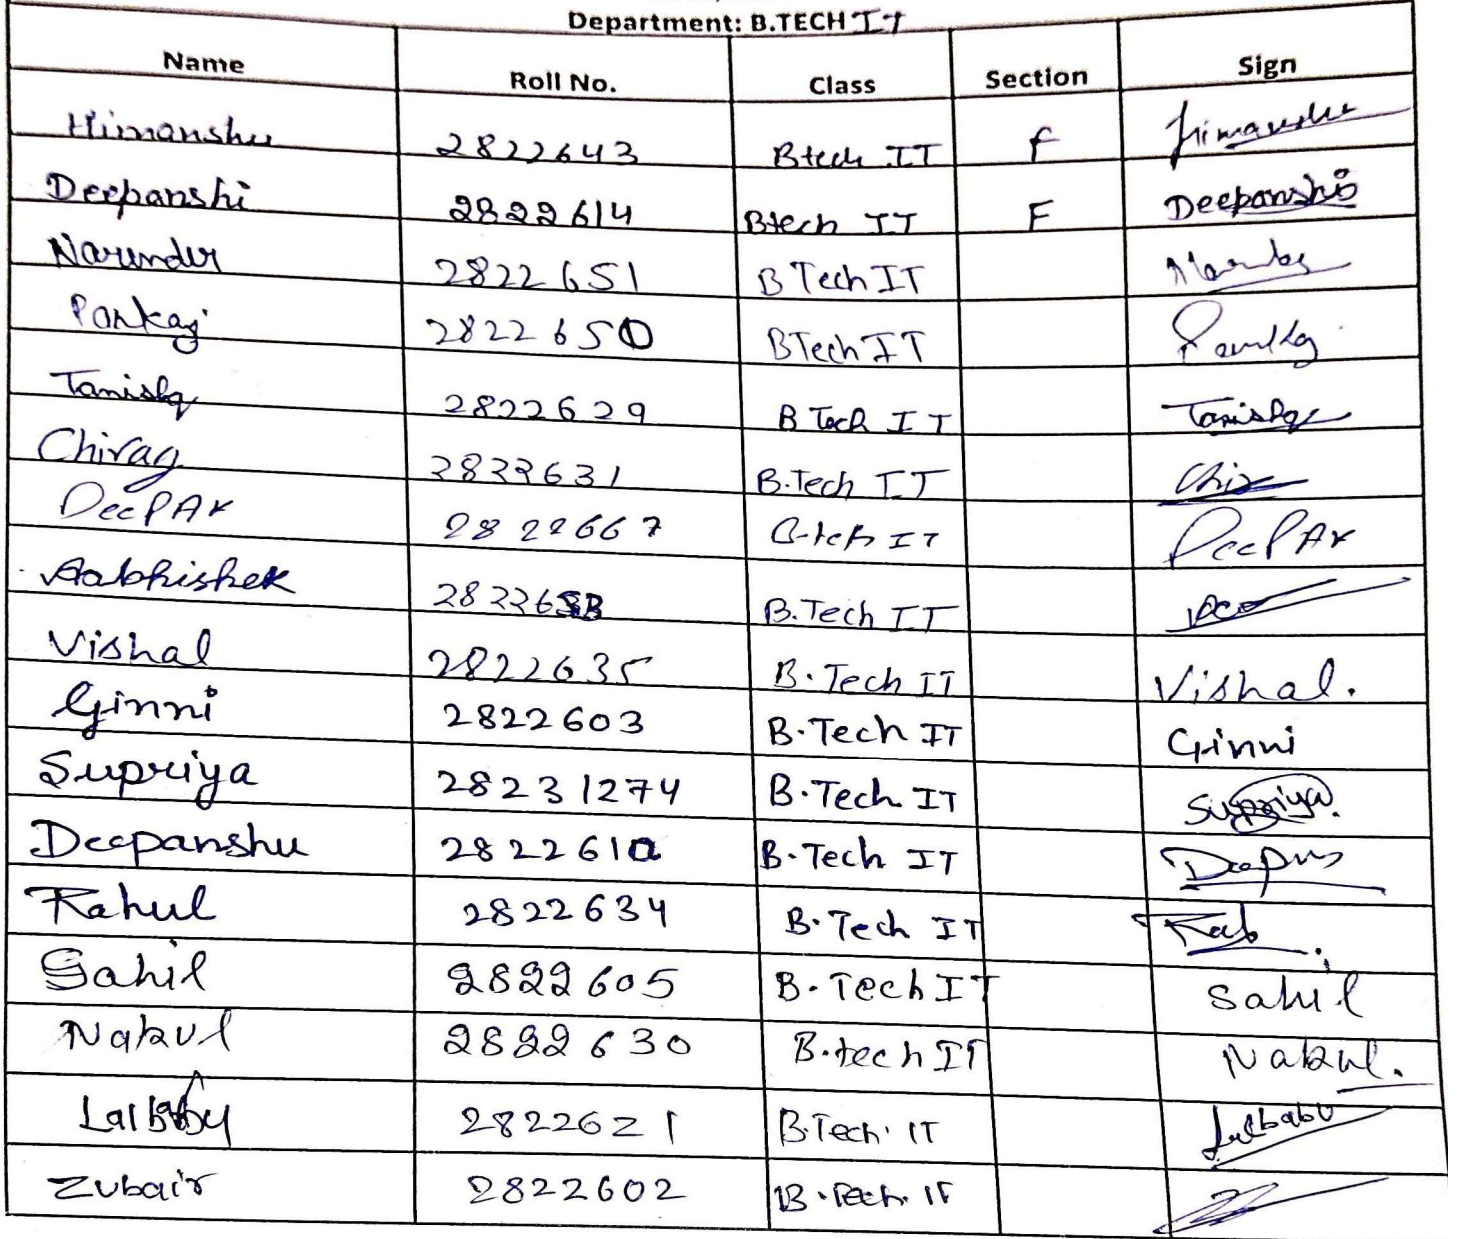 Department: B.TECH IT
Name Roll No. Class Section Sign
Himanshu 2822643 Btech IT f Himanshu
Deepanshi 2822614 Btech IT F Deepanshi
Narender 2822651 B Tech IT
Pankaj 2822650 BTech IT Pankaj
Tanishq 2822629 B Tech IT Tanishq
Chirag 2822631 B.Tech IT
DeePAK 2822667 B-tch IT DeePAK
Aabhishek B.Tech IT
Vishal 2822635 B.Tech IT Vishal.
Ginni 2822603 B.Tech IT Ginni
Supriya 28231274 B.Tech IT Supriya.
Deepanshu 2822610 B.Tech IT
Rahul 2822634 B.Tech IT
Sahil 2822605 B.Tech IT Sahil
Nakul 2822630 B.tech IT Nakul.
Lalbabu 2822621 B.Tech. IT Lalbabu
Zubair 2822602 B.Tech. IT